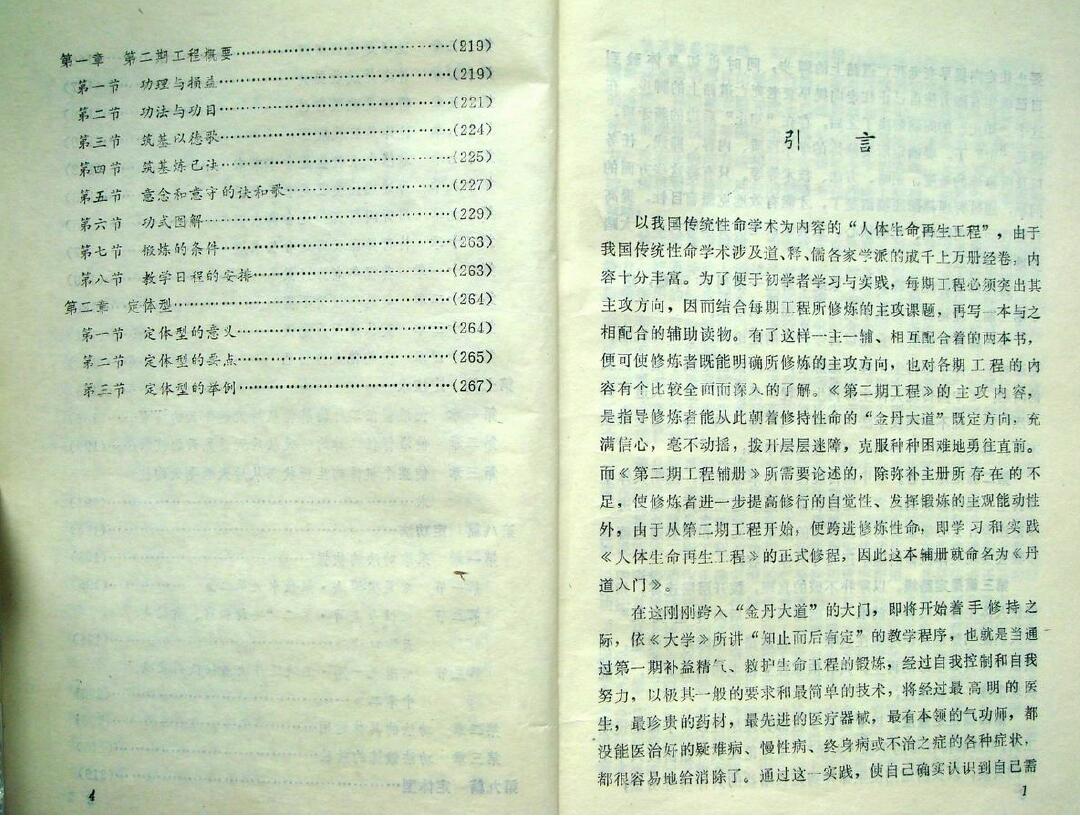 第一章　第二期工程概要……………………………(219)
第一节　功理与损益……………………………(219)
第二节　功法与功目……………………………(221)
第三节　筑基以德歌……………………………(224)
第四节　筑基炼己诀……………………………(225)
第五节　意念和意守的诀和歌……………………(227)
第六节　功式图解………………………………(229)
第七节　锻炼的条件……………………………(263)
第八节　教学日程的安排…………………………(263)
第二章　定体型…………………………………(264)
第一节　定体型的意义……………………………(264)
第二节　定体型的要点……………………………(265)
第三节　定体型的举例……………………………(267)
4
引　言
以我国传统性命学术为内容的“人体生命再生工程”，由于
我国传统性命学术涉及道、释、儒各家学派的成千上万册经卷，内
容十分丰富。为了便于初学者学习与实践，每期工程必须突出其
主攻方向，因而结合每期工程所修炼的主攻课题，再写一本与之
相配合的辅助读物。有了这样一主一辅、相互配合着的两本书，
便可使修炼者既能明确所修炼的主攻方向，也对各期工程的内
容有个比较全面而深入的了解。《第二期工程》的主攻内容，
是指导修炼者能从此朝着修持性命的“金丹大道”既定方向，充
满信心，毫不动摇，拨开层层迷障，克服种种困难地勇往直前。
而《第二期工程辅册》所需要论述的，除弥补主册所存在的不
足，使修炼者进一步提高修行的自觉性、发挥锻炼的主观能动性
外，由于从第二期工程开始，便跨进修炼性命，即学习和实践
《人体生命再生工程》的正式修程，因此这本辅册就命名为《丹
道入门》。
在这刚刚跨入“金丹大道”的大门，即将开始着手修持之
际，依《大学》所讲“知止而后有定”的教学程序，也就是当通
过第一期补益精气、救护生命工程的锻炼，经过自我控制和自我
努力，以极其一般的要求和最简单的技术，将经过最高明的医
生，最珍贵的药材，最先进的医疗器械，最有本领的气功师，都
没能医治好的疑难病、慢性病、终身病或不治之症的各种症状，
都很容易地给消除了。通过这一实践，使自己确实认识到自己需
1